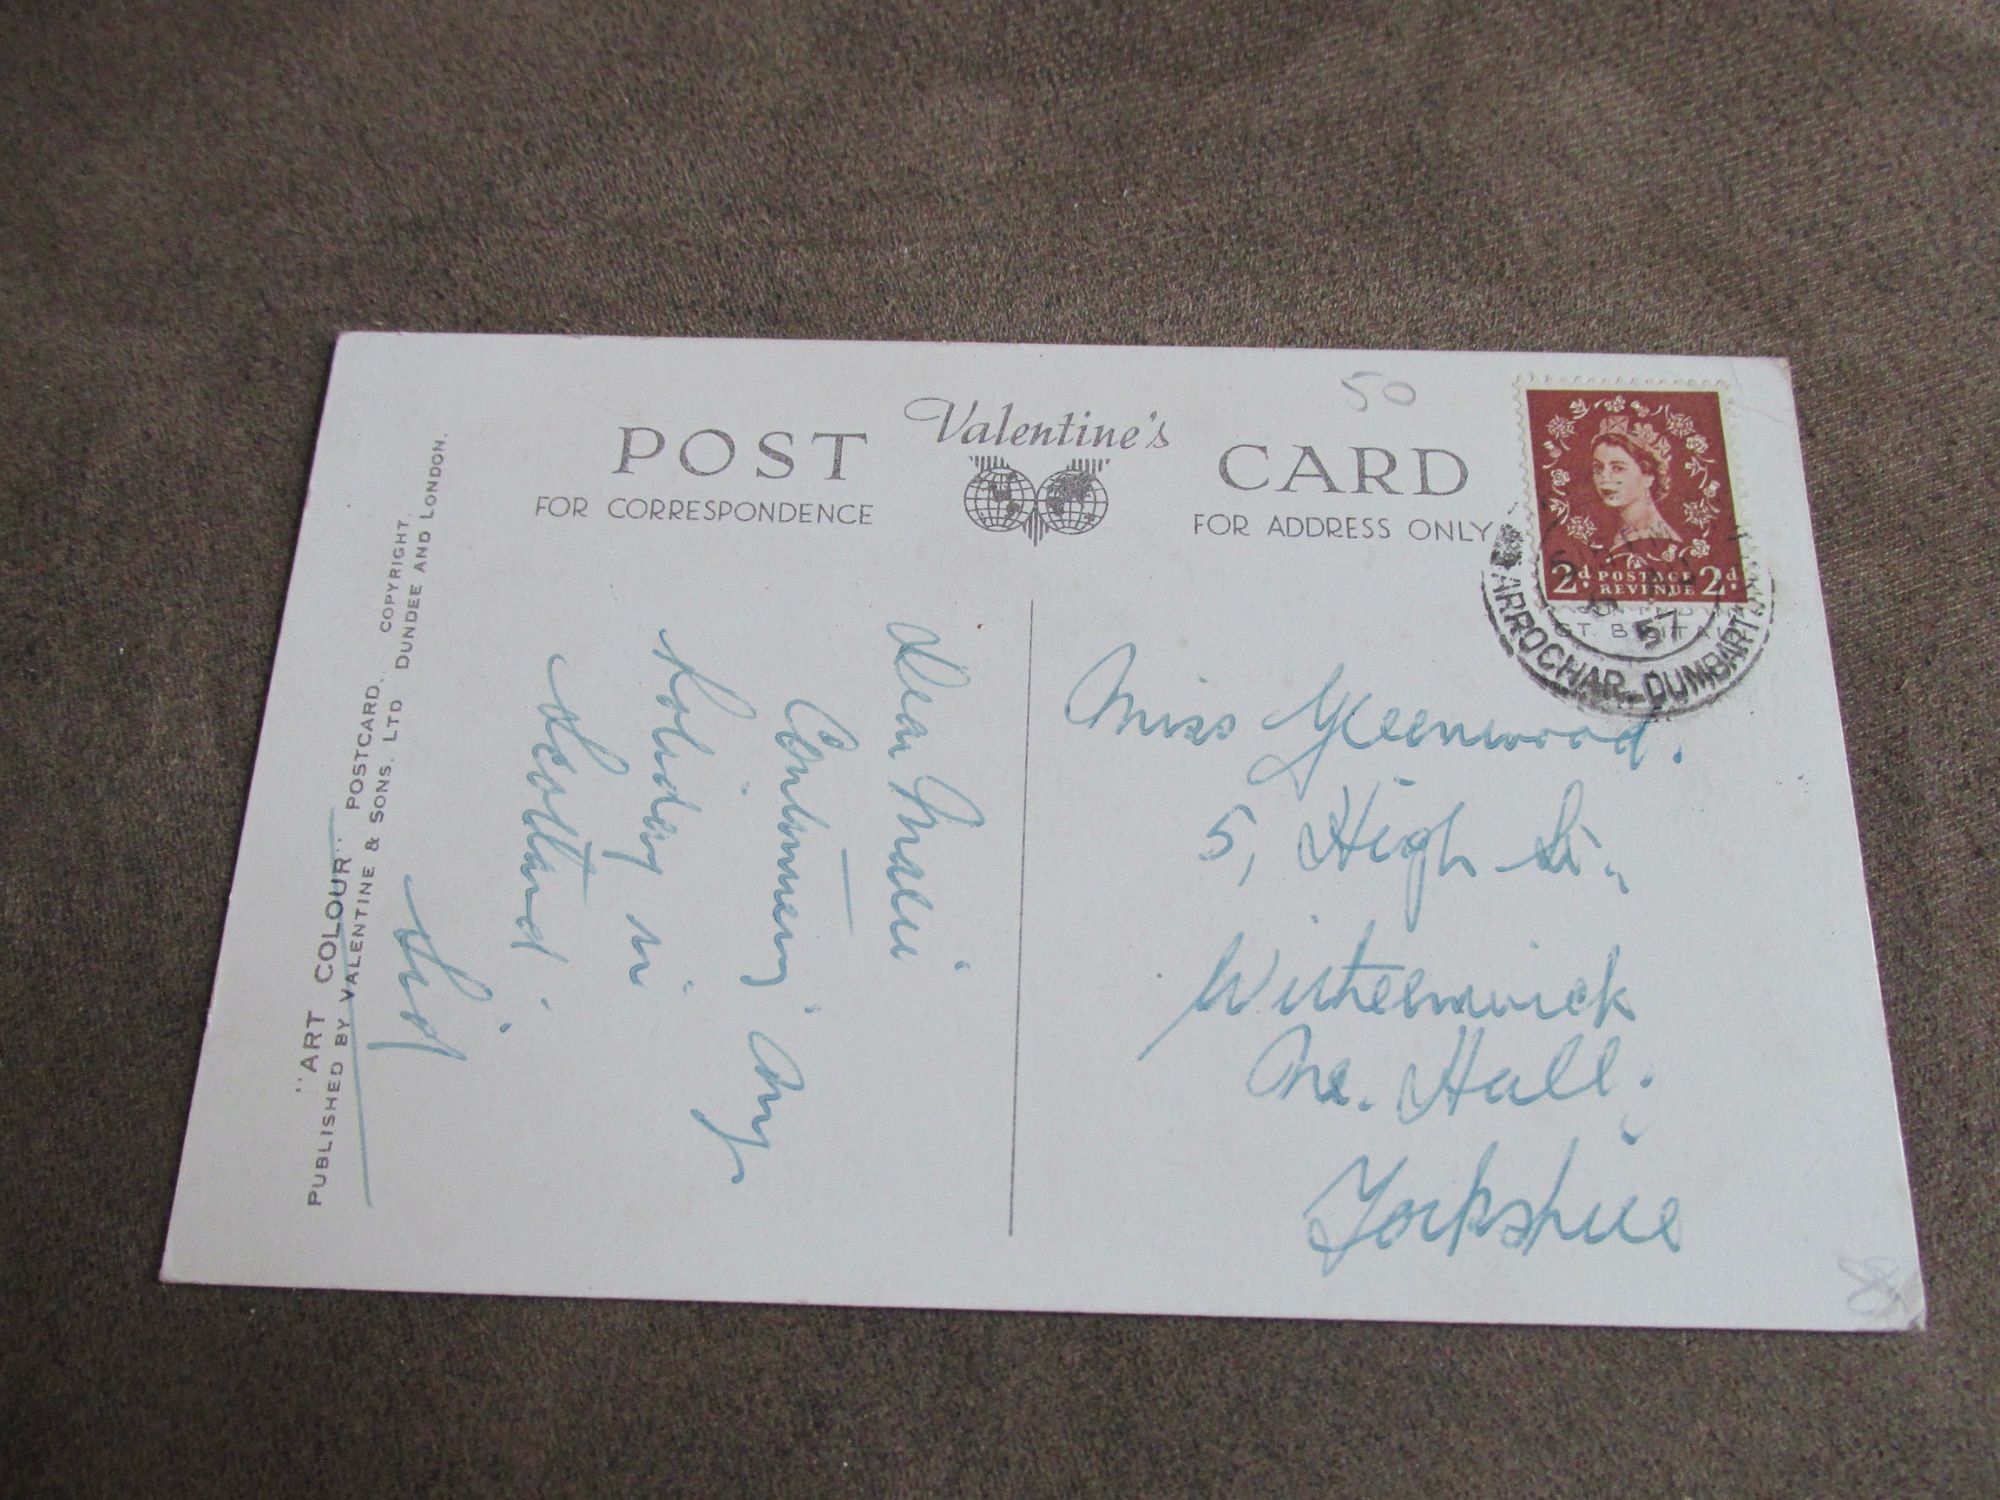 POST Valentine's CARD
FOR CORRESPONDENCE
FOR ADDRESS ONLY
50
2d POSTAGE REVENUE 2d
ARROCHAR DUMBART
57
Dear
my
holiday in
Scotland.
Sid
"ART COLOUR" POSTCARD. COPYRIGHT.
PUBLISHED BY VALENTINE & SONS. LTD DUNDEE AND LONDON.
Miss Greenwood.
5, High St.,
Withernwick
Nr. Hull.
Yorkshire